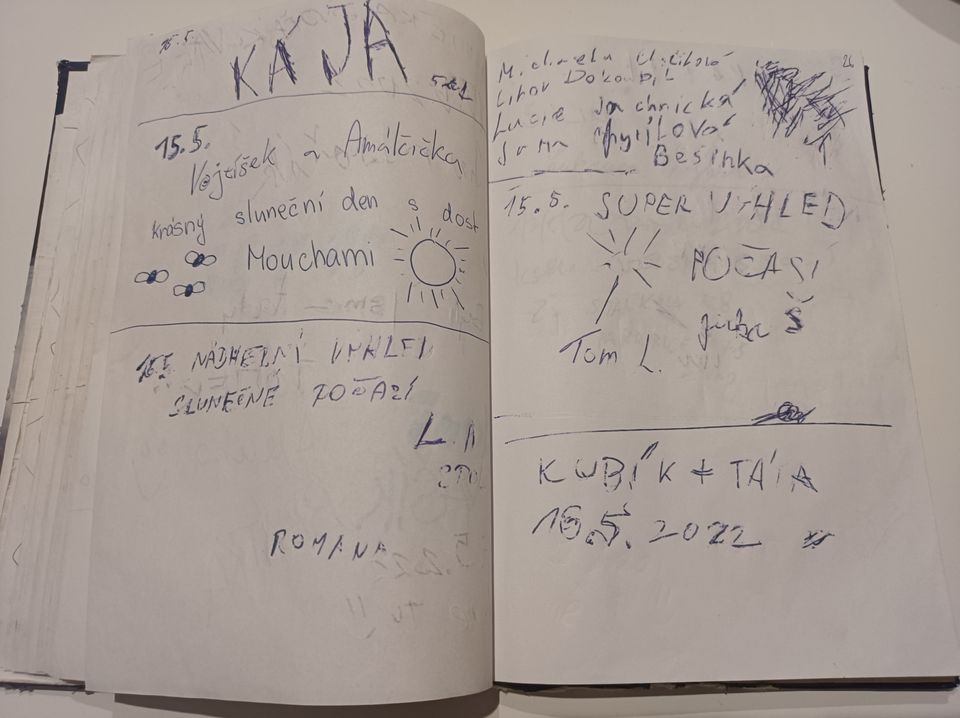 15.5.
KÁJA
5 let
15.5.
Vojtíšek a Amálčička
krásný sluneční den s dost
Mouchami
NÁDHERNÍ VÍHLED
SLUNEČNÉ POČAZÍ
ROMANA
Michaela
Libor Dokoupil
Lucie Jachnická
Jana
Besinka
15.5. SUPER VÝHLED
POČASI
Jirka Š
Tom L.
KUBÍK + TÁTA
15.5.2022